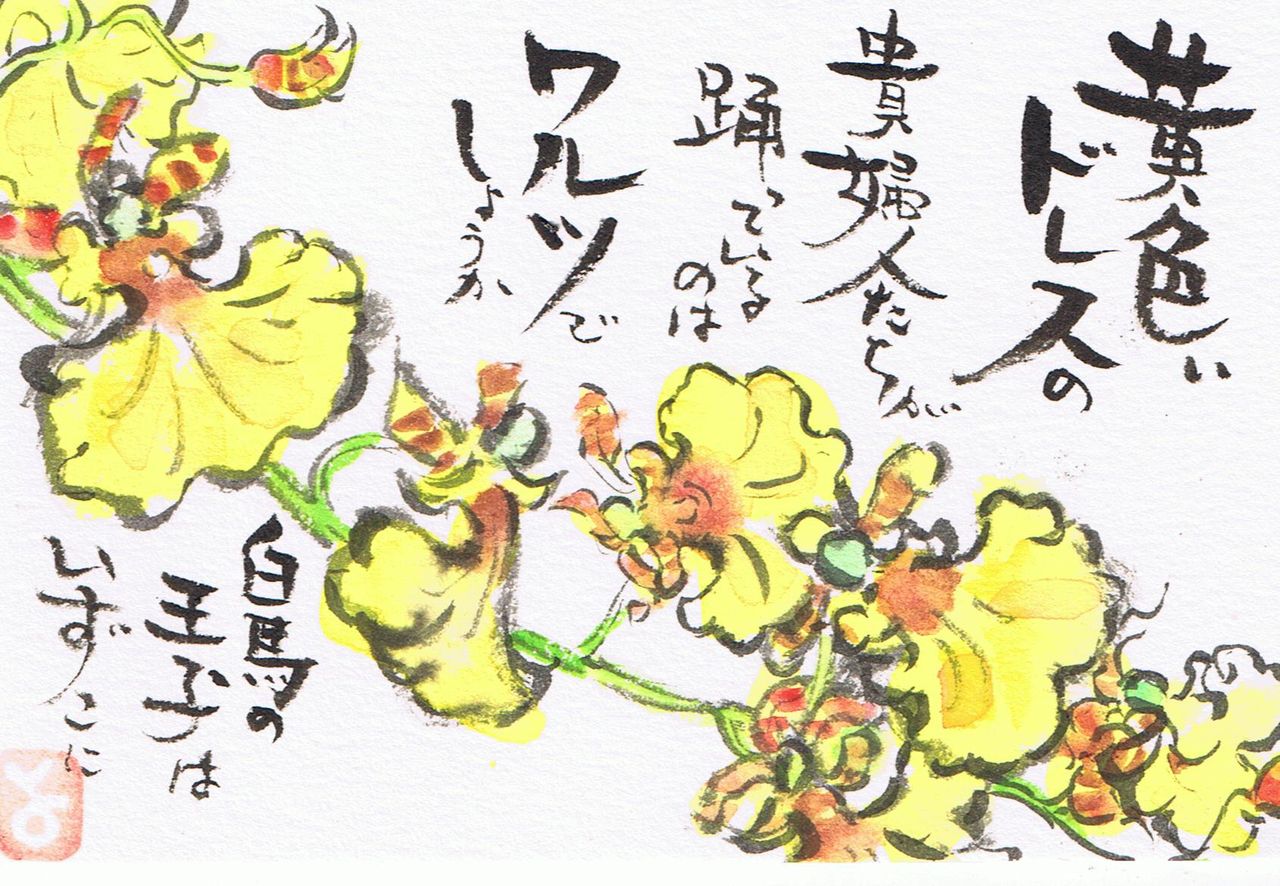 黄色い
ドレスの
貴婦人たちが
踊っている
のは
ワルツで
しょうか
白馬の
王子は
いずこに
とよ